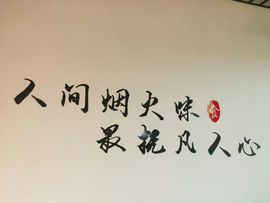 人间烟火味
食
最抚凡人心